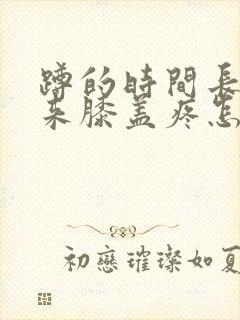 蹲的時間長
来膝盖疼怎
初戀璀璨如夏